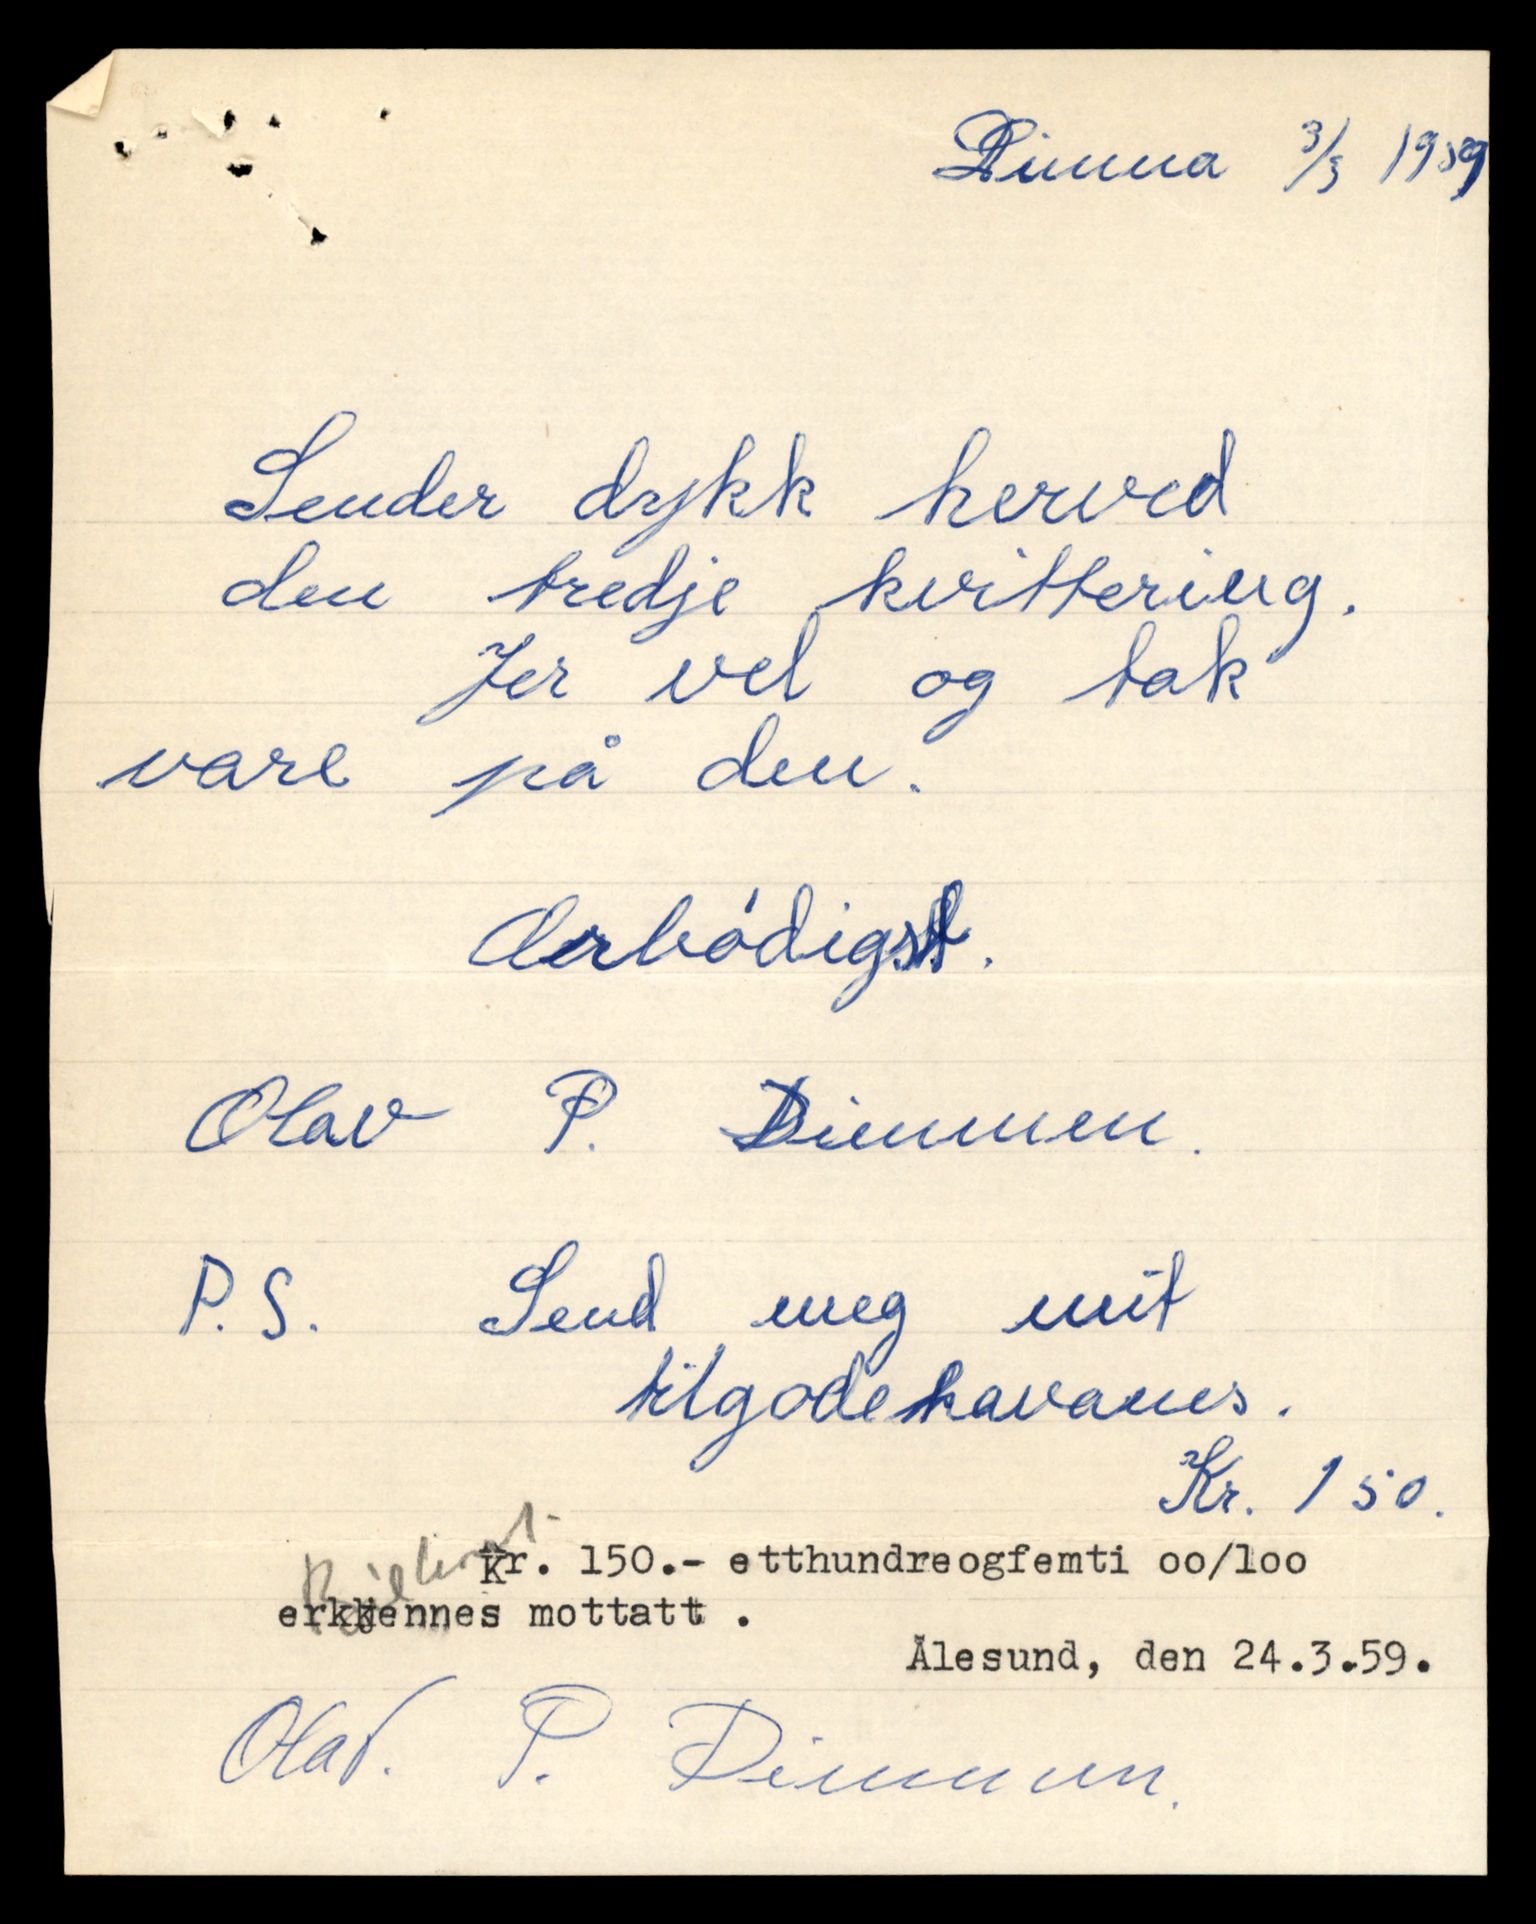 Dimna 3/3 1959
Sender dykk herved
den tredje kvittering.
Jer vel og tak
vare på den.
Aerbódigst.
Olav P. Dimmen.
P.S. Send meg mit
tilgodehavanes.
Kr. 150.
Kr. 150.- etthundreogfemti oo/loo
erkjennes mottatt .
Ålesund, den 24.3.59.
Olav. P. Dimmen.